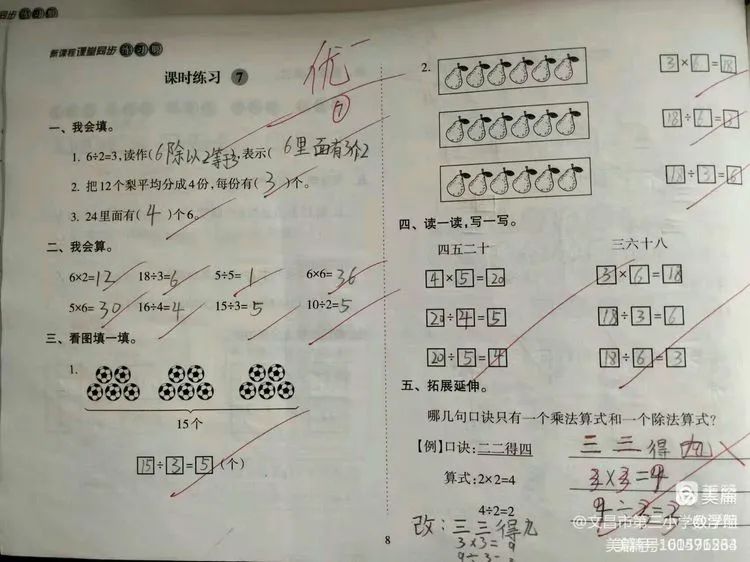 同步练习册
新课程课堂同步练习册
课时练习 7
优
一、我会填。
1. 6÷2=3,读作(6除以2等于3,表示( 6里面有3个2
2. 把12个梨平均分成4份,每份有( 3 )个。
3. 24里面有( 4 )个6。
二、我会算。
6×2=12 18÷3=6 5÷5=1 6×6=36
5×6=30 16÷4=4 15÷3=5 10÷2=5
三、看图填一填。
1.
15个
15÷3=5(个)
2.
3×6=18
18÷6=3
18÷3=6
四、读一读,写一写。
四五二十 三六十八
4×5=20 3×6=18
20÷4=5 18÷3=6
20÷5=4 18÷6=3
五、拓展延伸。
哪几句口诀只有一个乘法算式和一个除法算式?
【例】口诀:二二得四 三三得九
算式:2×2=4 3×3=9
4÷2=2 9÷3=3
改:三三得九
3×3=9
9÷3=
8
美篇
@文昌市第三小学
美篇号